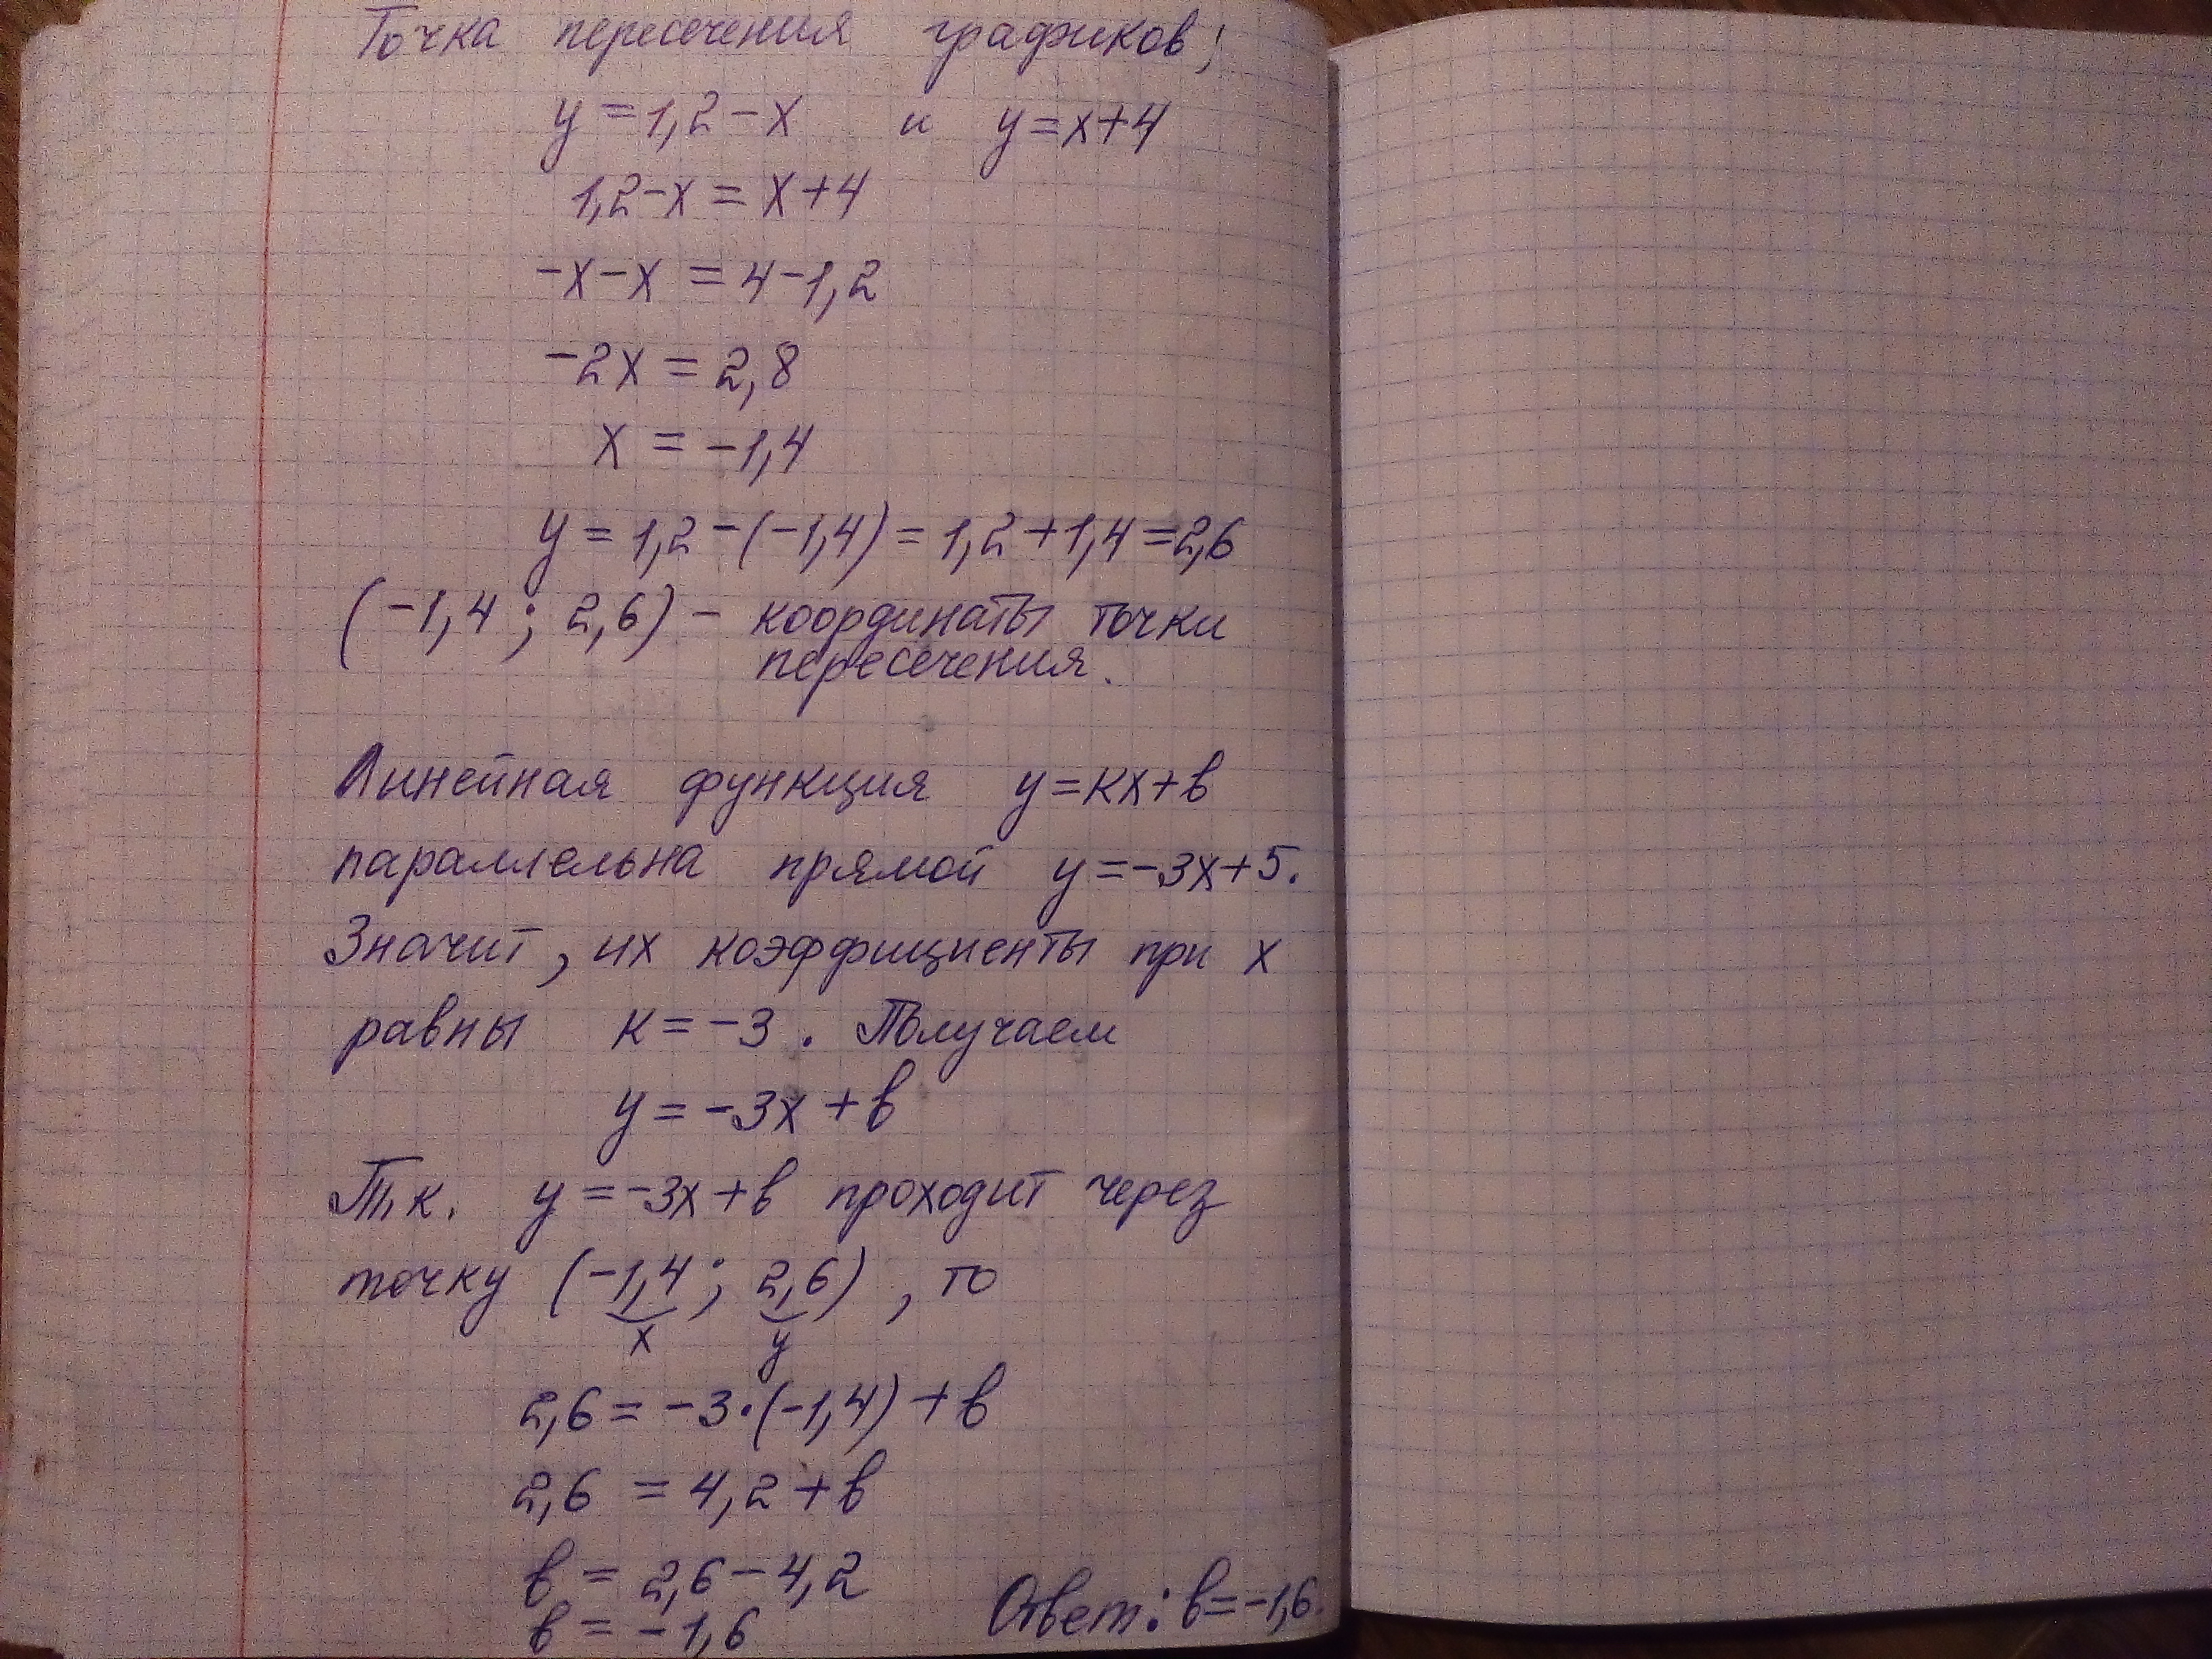 Точка пересечения графиков;
y = 1,2 - x и y = x + 4
1,2 - x = x + 4
-x - x = 4 - 1,2
-2x = 2,8
x = -1,4
y = 1,2 - (-1,4) = 1,2 + 1,4 = 2,6
(-1,4 ; 2,6) - координаты точки
пересечения.
Линейная функция y = кx + в
параллельна прямой y = -3x + 5.
Значит, их коэффициенты при x
равны к = -3. Получаем
y = -3x + в
Т.к. y = -3x + в проходит через
точку (-1,4 ; 2,6), то
x y
2,6 = -3·(-1,4) + в
2,6 = 4,2 + в
в = 2,6 - 4,2
в = -1,6 Ответ: в = -1,6.